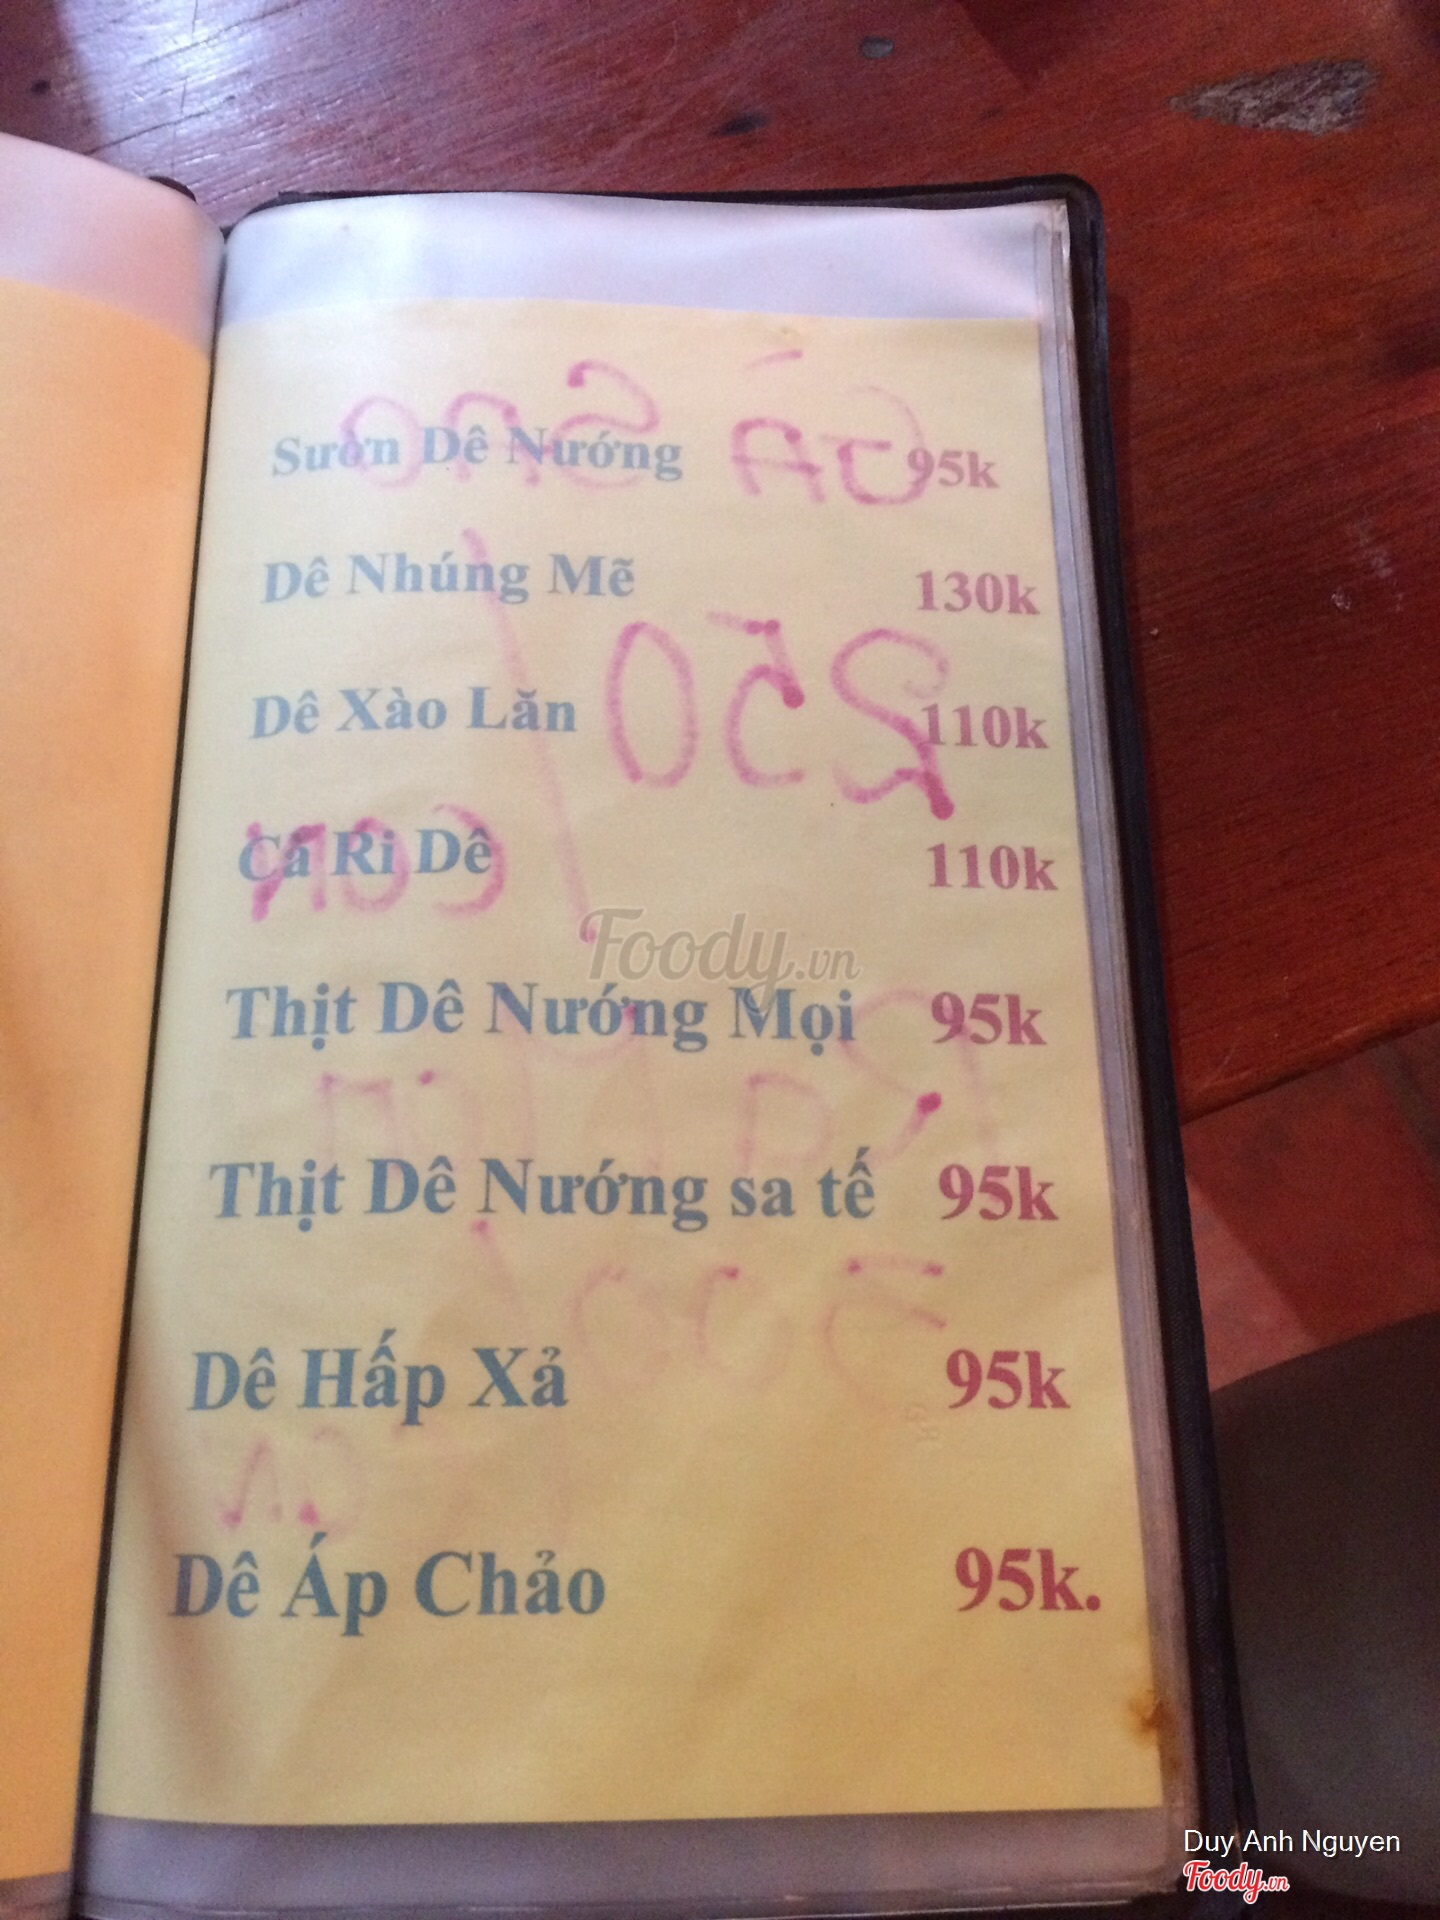 Sườn Dê Nướng 95k
Dê Nhúng Mẽ 130k
Dê Xào Lăn 110k
Cà Ri Dê 110k
Foody.vn
Thịt Dê Nướng Mọi 95k
Thịt Dê Nướng sa tế 95k
Dê Hấp Xả 95k
Dê Áp Chảo 95k.
Duy Anh Nguyen
Foody.vn